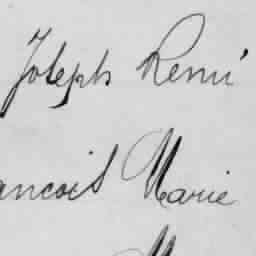 Joseph Remi
ancois Marie